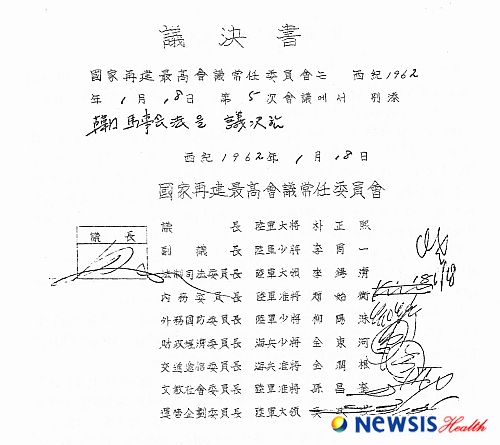 議決書
國家再建最高會議常任委員會는 西紀1962
年 1月 18日 第5次會議에서 別添
韓國馬事會法을 議決함
西紀1962年 1月 18日
國家再建最高會議常任委員會
議長 陸軍大將 朴正熙
議長
副議長 陸軍少將 李周一
法制司法委員長 陸軍大領 李錫濟
內務委員長 陸軍准將
外務國防委員長 陸軍少將 柳陽洙
財政經濟委員長 海兵少將 金東河
交通遞信委員長 海兵准將 金潤根
文敎社會委員長 陸軍准將 孫昌奎
運營企劃委員長 陸軍大領
NEWSIS Health